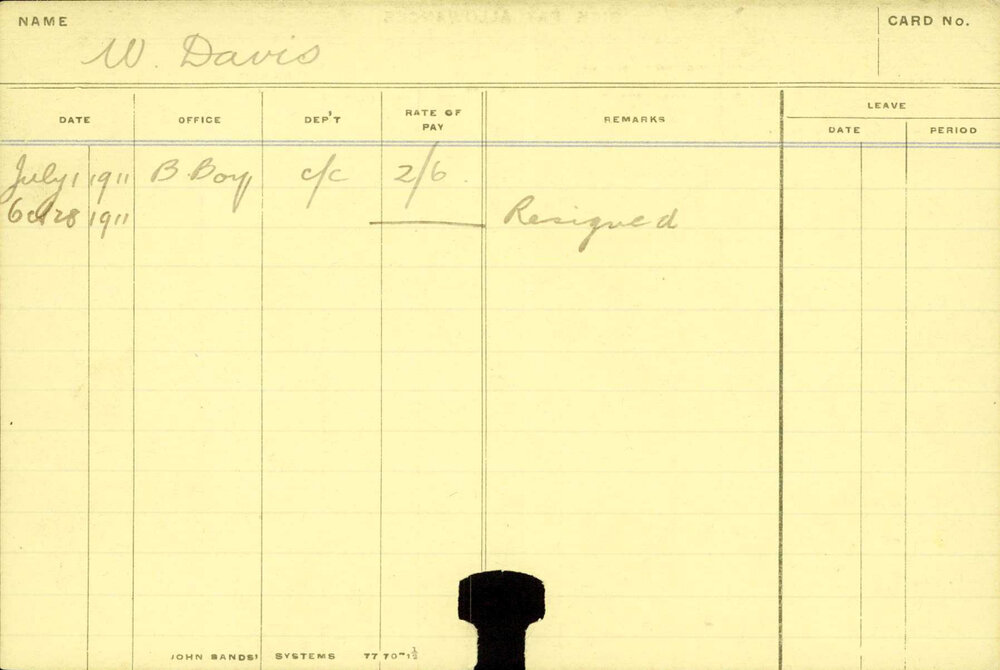 NAME
CARD No.
W. Davis
DATE OFFICE DEP'T RATE OF PAY REMARKS LEAVE
DATE PERIOD
July 1 1911 B. Boy c/c 2/6
Oct 28 1911 Resigned
JOHN SANDS' SYSTEMS 77 70